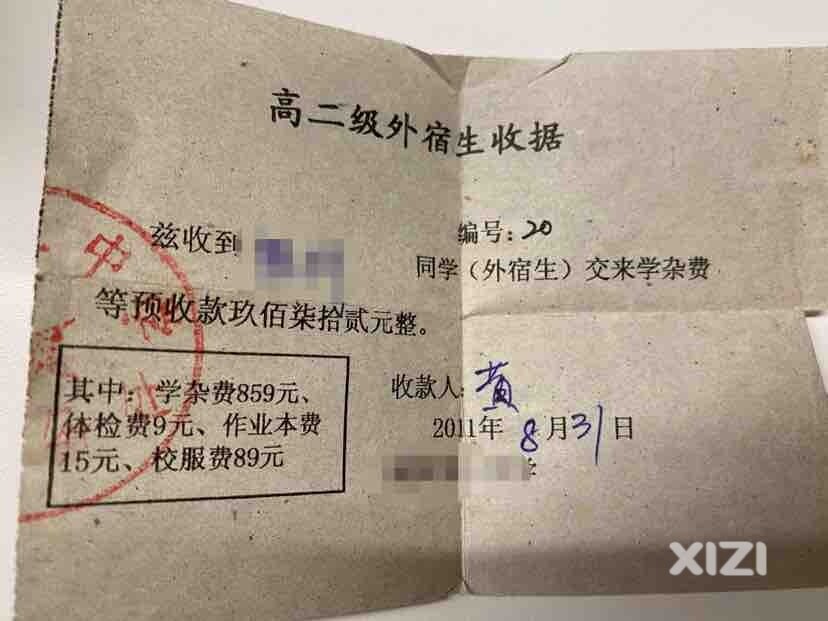 高二级外宿生收据
编号:20
兹收到
同学(外宿生)交来学杂费
等预收款玖佰柒拾贰元整。
其中:学杂费859元、
体检费9元、作业本费
15元、校服费89元
收款人:黄
2011年8月31日
学
中
XIZI